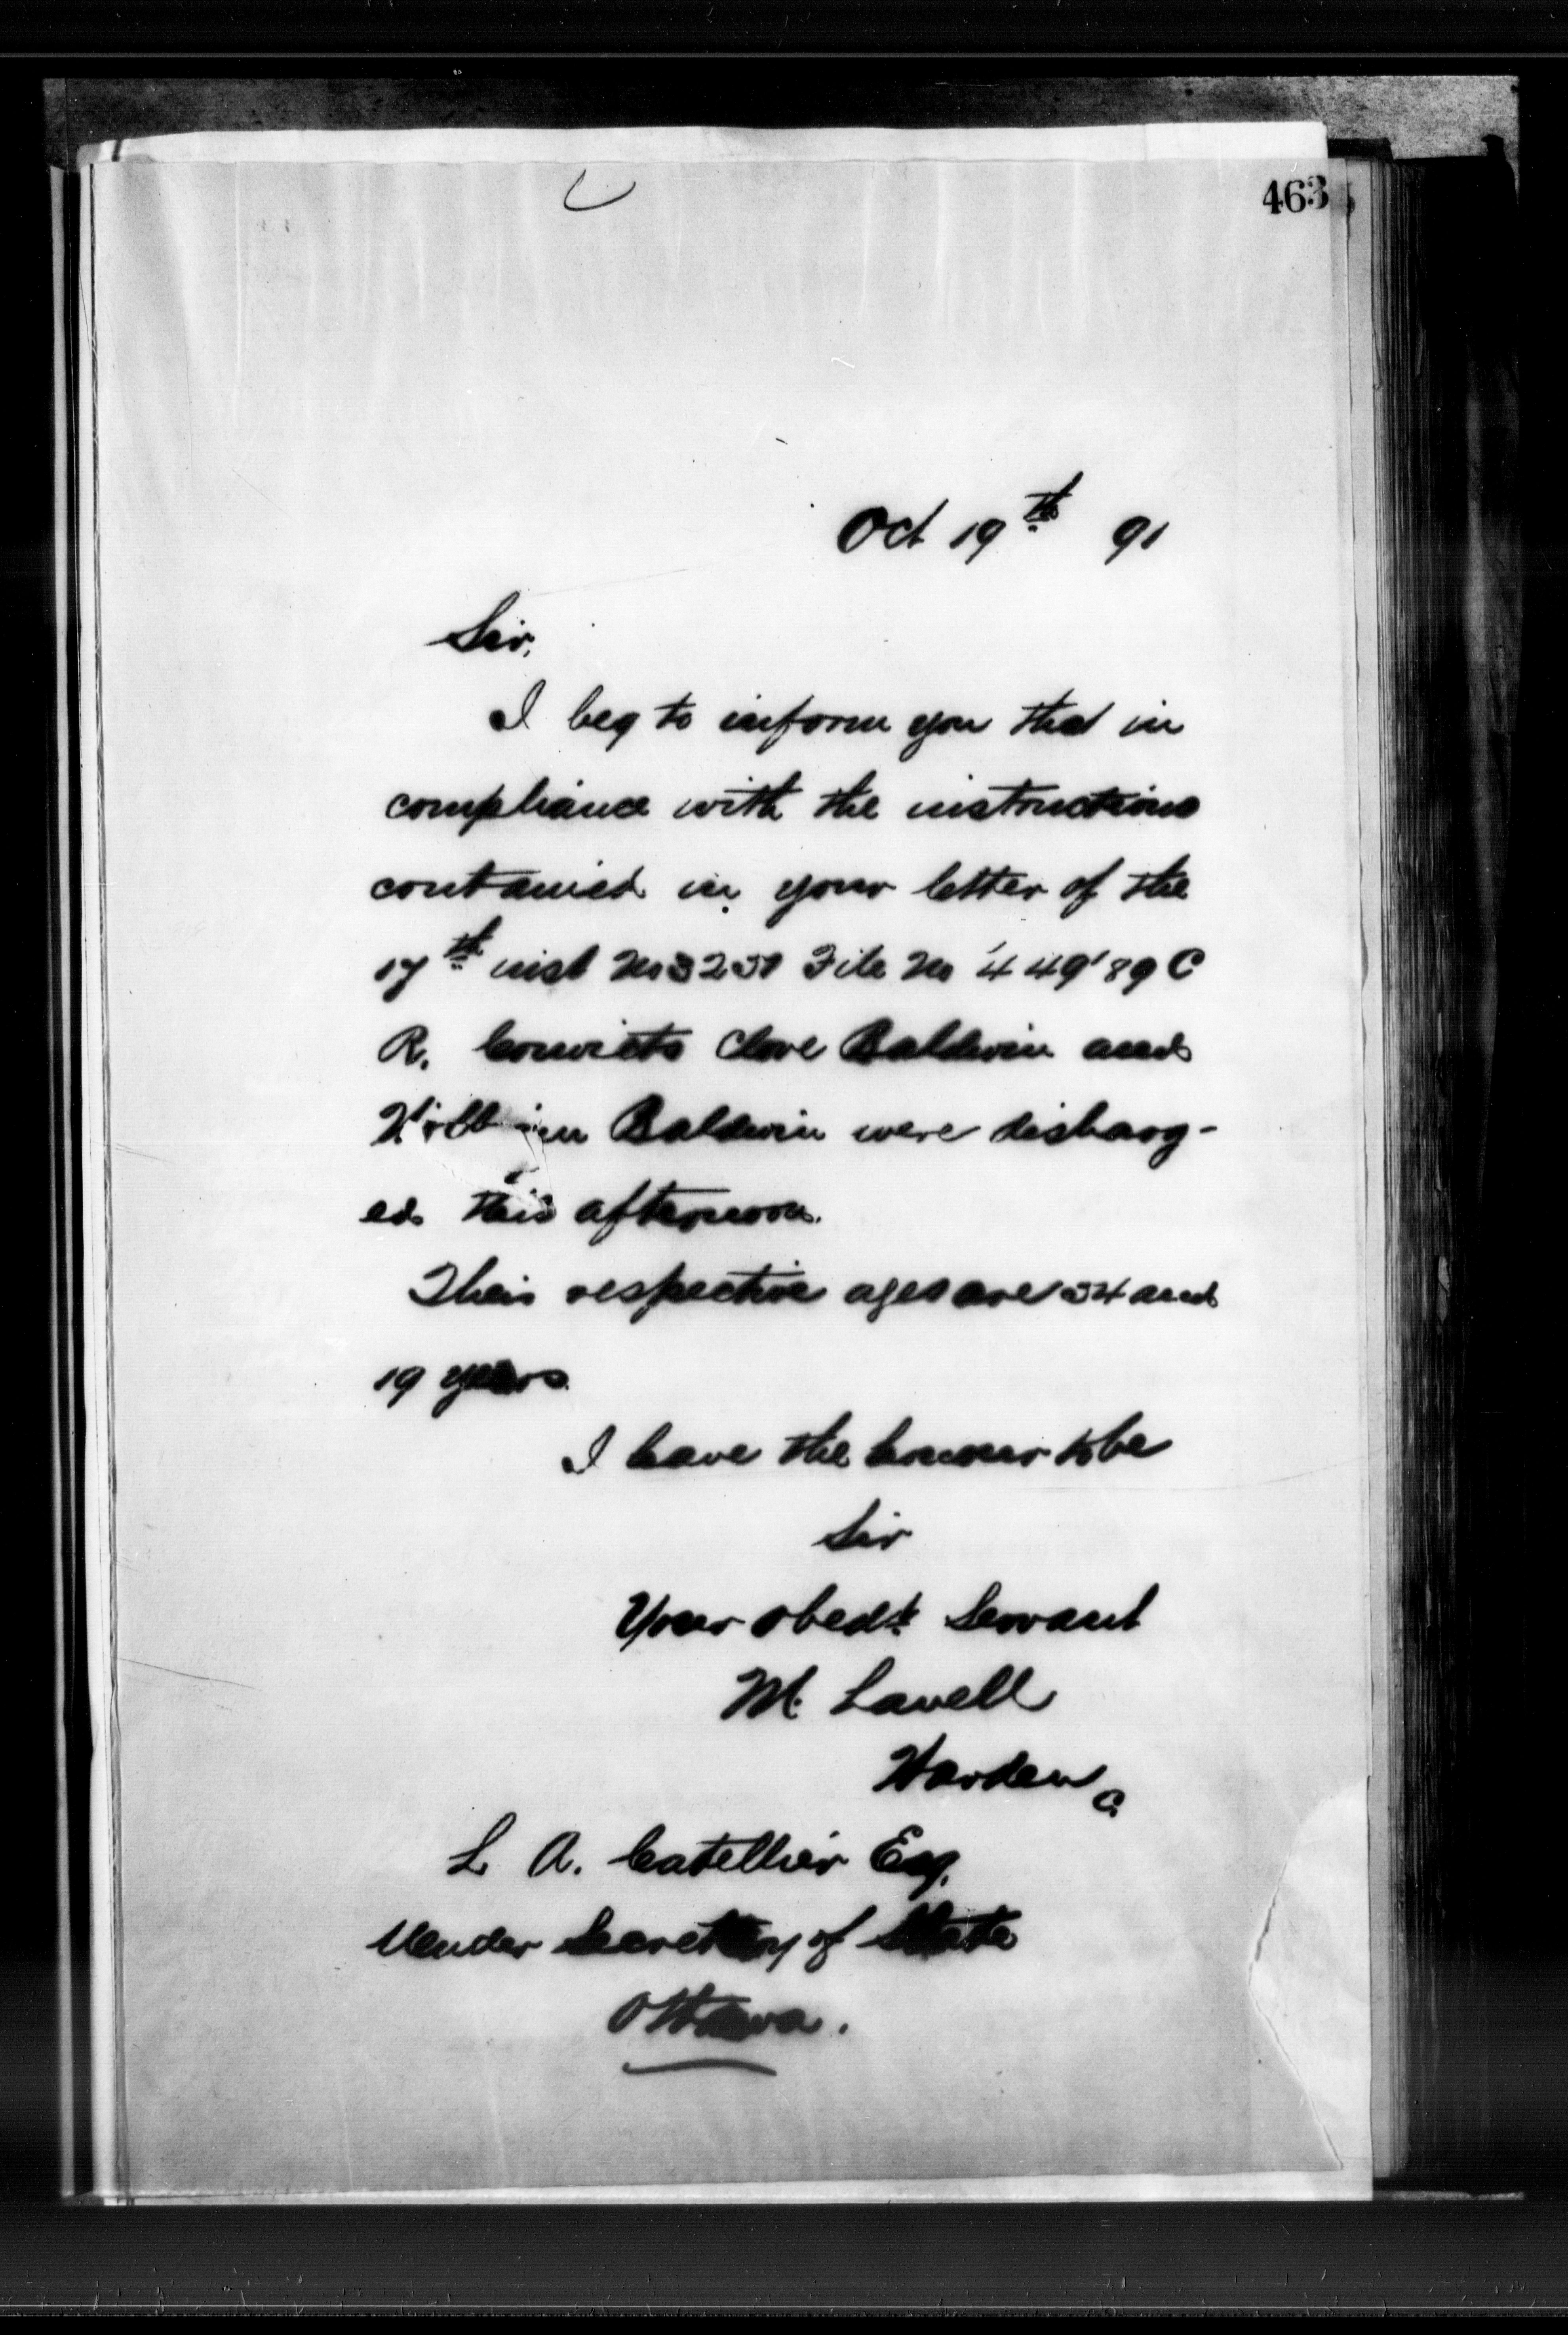 463
Oct 19th 91
Sir,
I beg to inform you that in
compliance with the instructions
contained in your letter of the
17th inst No File No 449'89 C
R. Convicts Clove Baldwin and
William Baldwin were discharg-
ed this afternoon.
Their respective ages are 34 and
19 years
I have the honour to be
Sir
Your obedt Servant
M. Lavell
Warden
L A. Catellier Esq.
Under Secretary of State
Ottawa.